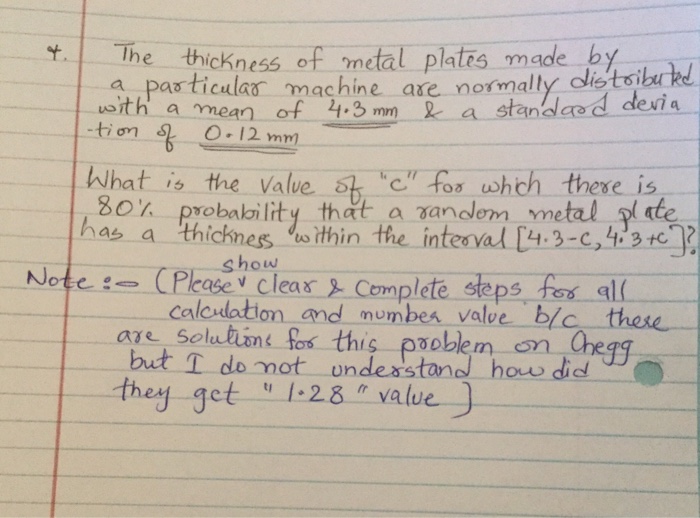 4. The thickness of metal plates made by
a particular machine are normally distributed
with a mean of 4.3 mm & a standard devia
-tion of 0.12 mm
What is the value of "c" for which there is
80% probability that a random metal plate
has a thickness within the interval [4.3-c, 4.3+c]?
show
Note :- (Please clear & complete steps for all
calculation and number value b/c there
are solutions for this problem on Chegg
but I do not understand how did
they get "1.28" value ]